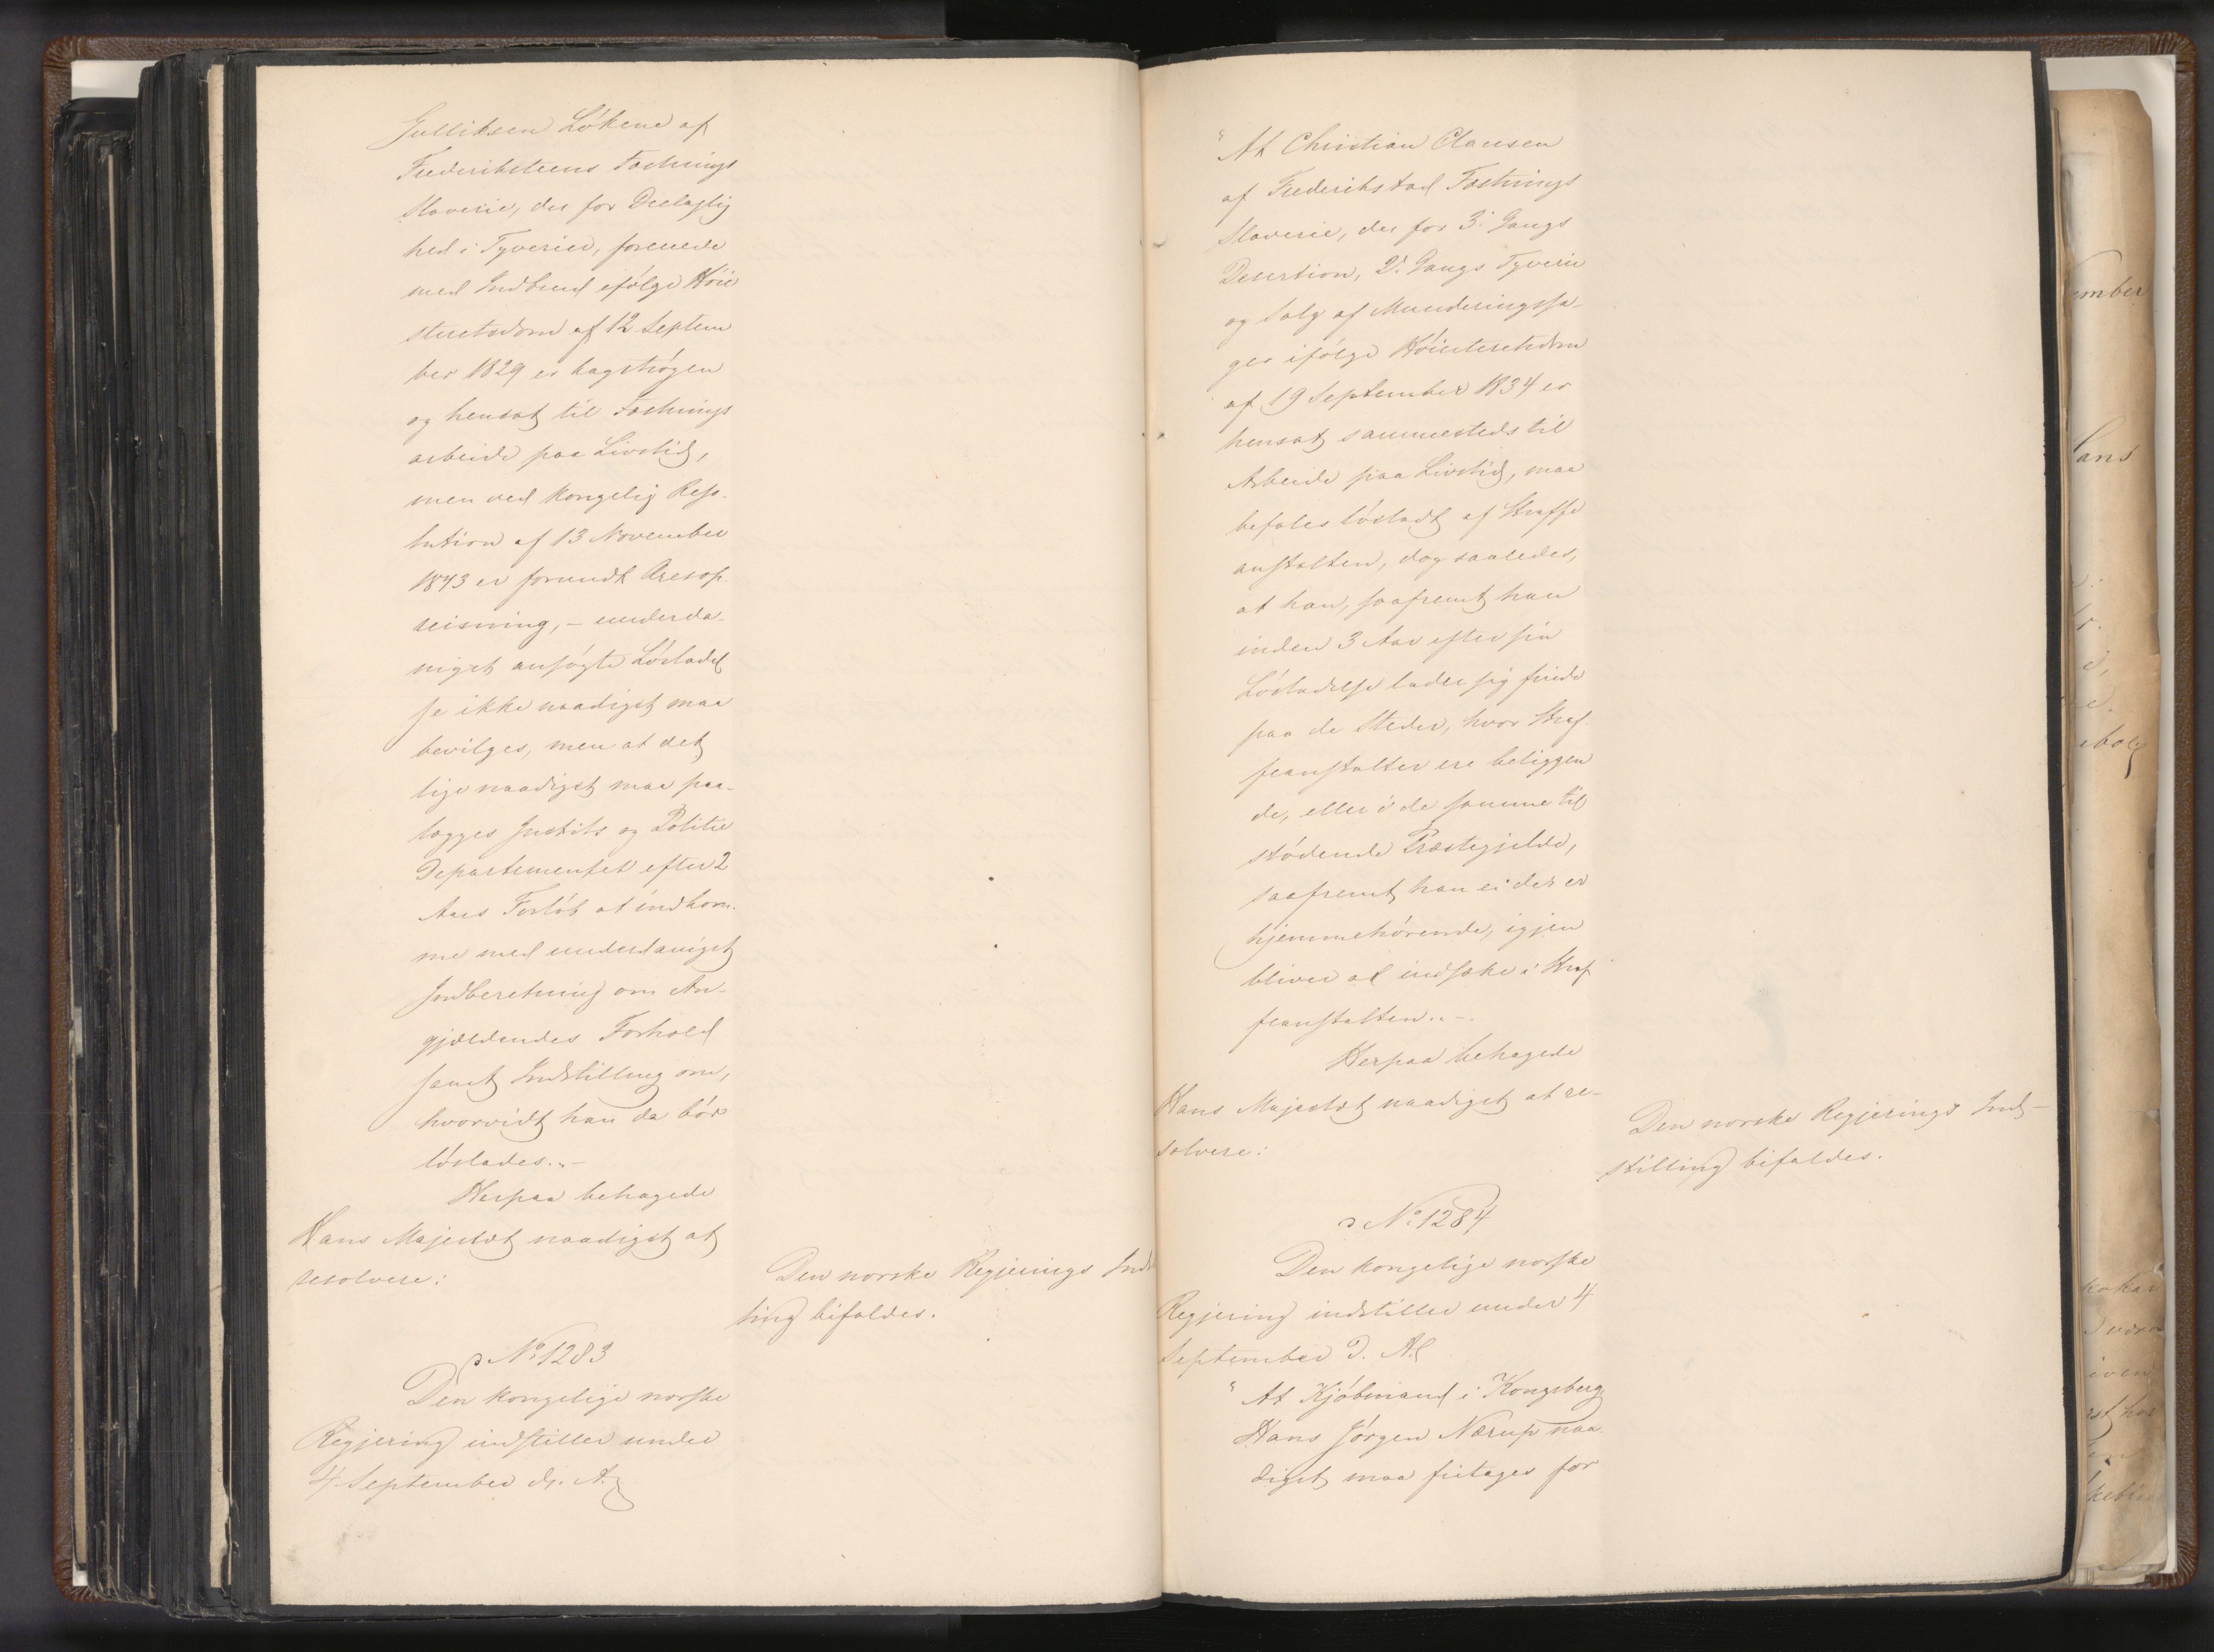 Gulliksen Løkene af
Frederiksteens Fæstnings
Slaverie, der for Deelagtig
hed i Tyverier, forenede
med Indbrud ifølge Høie
steretsdom af 12 Septem
ber 1829 er kagstrøgen
og hensat til Fæstnings
arbeide paa Livstid,
men ved kongelig Reso-
lution af 13 November
1843 er forundt Æresop-
reisning, – underda-
nigst ansøgte Løsladel
se ikke naadigst maa
bevilges, men at det
lige naadigst maa paa-
lægges Justits og Politie
Departementet efter 2
Aars Forløb at indkom-
me med underdanigst
Indberetning om An-
gjældendes Forhold
samt Indstilling om,
hvorvidt han da bør
løslades." –
Herpaa behagede
Hans Majestæt naadigst at
resolvere:
Den norske Regjerings Indst
ling bifaldes.
No 1283
Den kongelige norske
Regjering indstiller under
4 September d. A.
"At Christian Clausen
af Frederikstad Fæstnings
Slaverie, der for 3. Gangs
Desertion, 2. Gangs Tyverie
og Salg af Munderingssa-
ger ifølge Høiesteretsdom
af 19 September 1834 er
hensat sammesteds til
Arbeide paa Livstid, maa
befales løsladt af Straffe
anstalten, dog saaledes,
at han, saafremt han
inden 3 Aar efter sin
Løsladelse lader sig finde
paa de Steder, hvor Straf
feanstalter ere beliggen
de, eller i de samme til
stødende Præstegjelde,
saafremt han ei der er
hjemmehørende, igjen
bliver at indsætte i Straf
feanstalten." –
Herpaa behagede
Hans Majestæt naadigst at re-
solvere:
Den norske Regjerings Ind-
stilling bifaldes.
No 1284
Den kongelige norske
Regjering indstiller under 4
September d. A.
"At Kjøbmand i Kongsberg
Hans Jørgen Nærup naa
digst maa fritages for